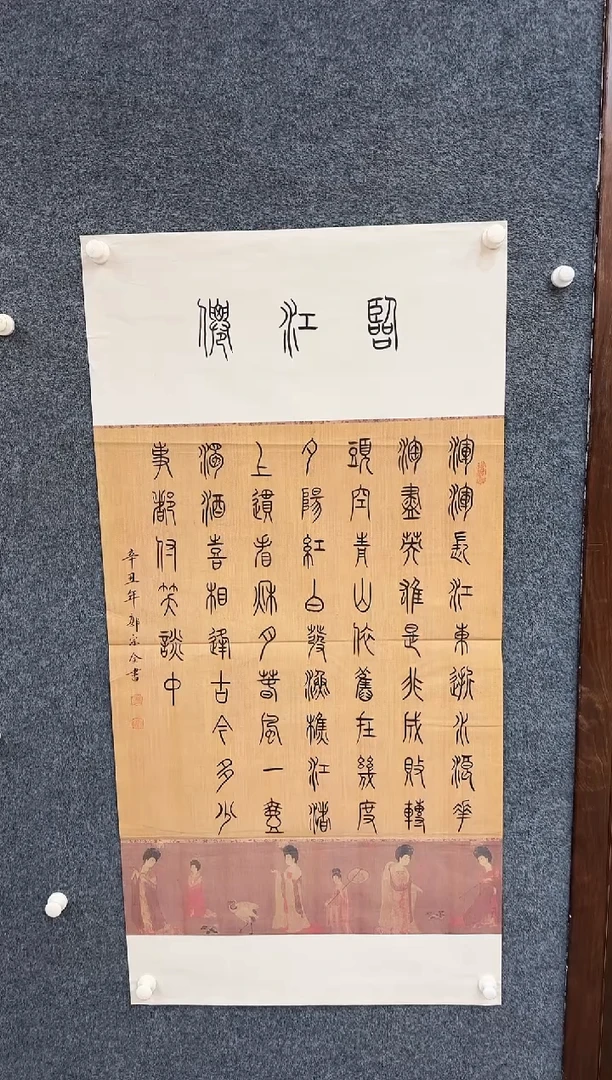 臨江僊
渾渾長江東逝水浪華
淘盡英雄是非成敗轉
頭空青山依舊在幾度
夕陽紅白發漁樵江渚
上慣看秌月春風一壺
濁酒喜相逢古今多少
事都付笑談中
辛丑年鄭宗全書